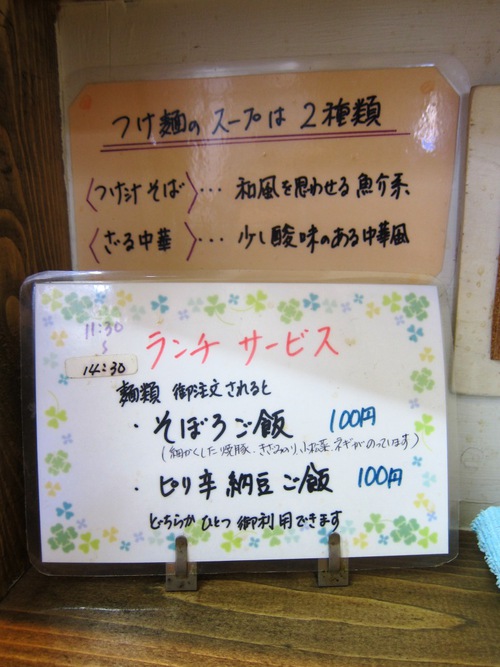 つけ麺のスープは2種類
〈つけ汁そば〉… 和風を思わせる魚介系
〈ざる中華〉… 少し酸味のある中華風
11:30
〜
14:30
ランチサービス
麺類 御注文されると
・そぼろご飯 100円
(細かくした焼豚、きざみのり、小松菜、ネギがのっています)
・ピリ辛納豆ご飯 100円
どちらかひとつ御利用できます